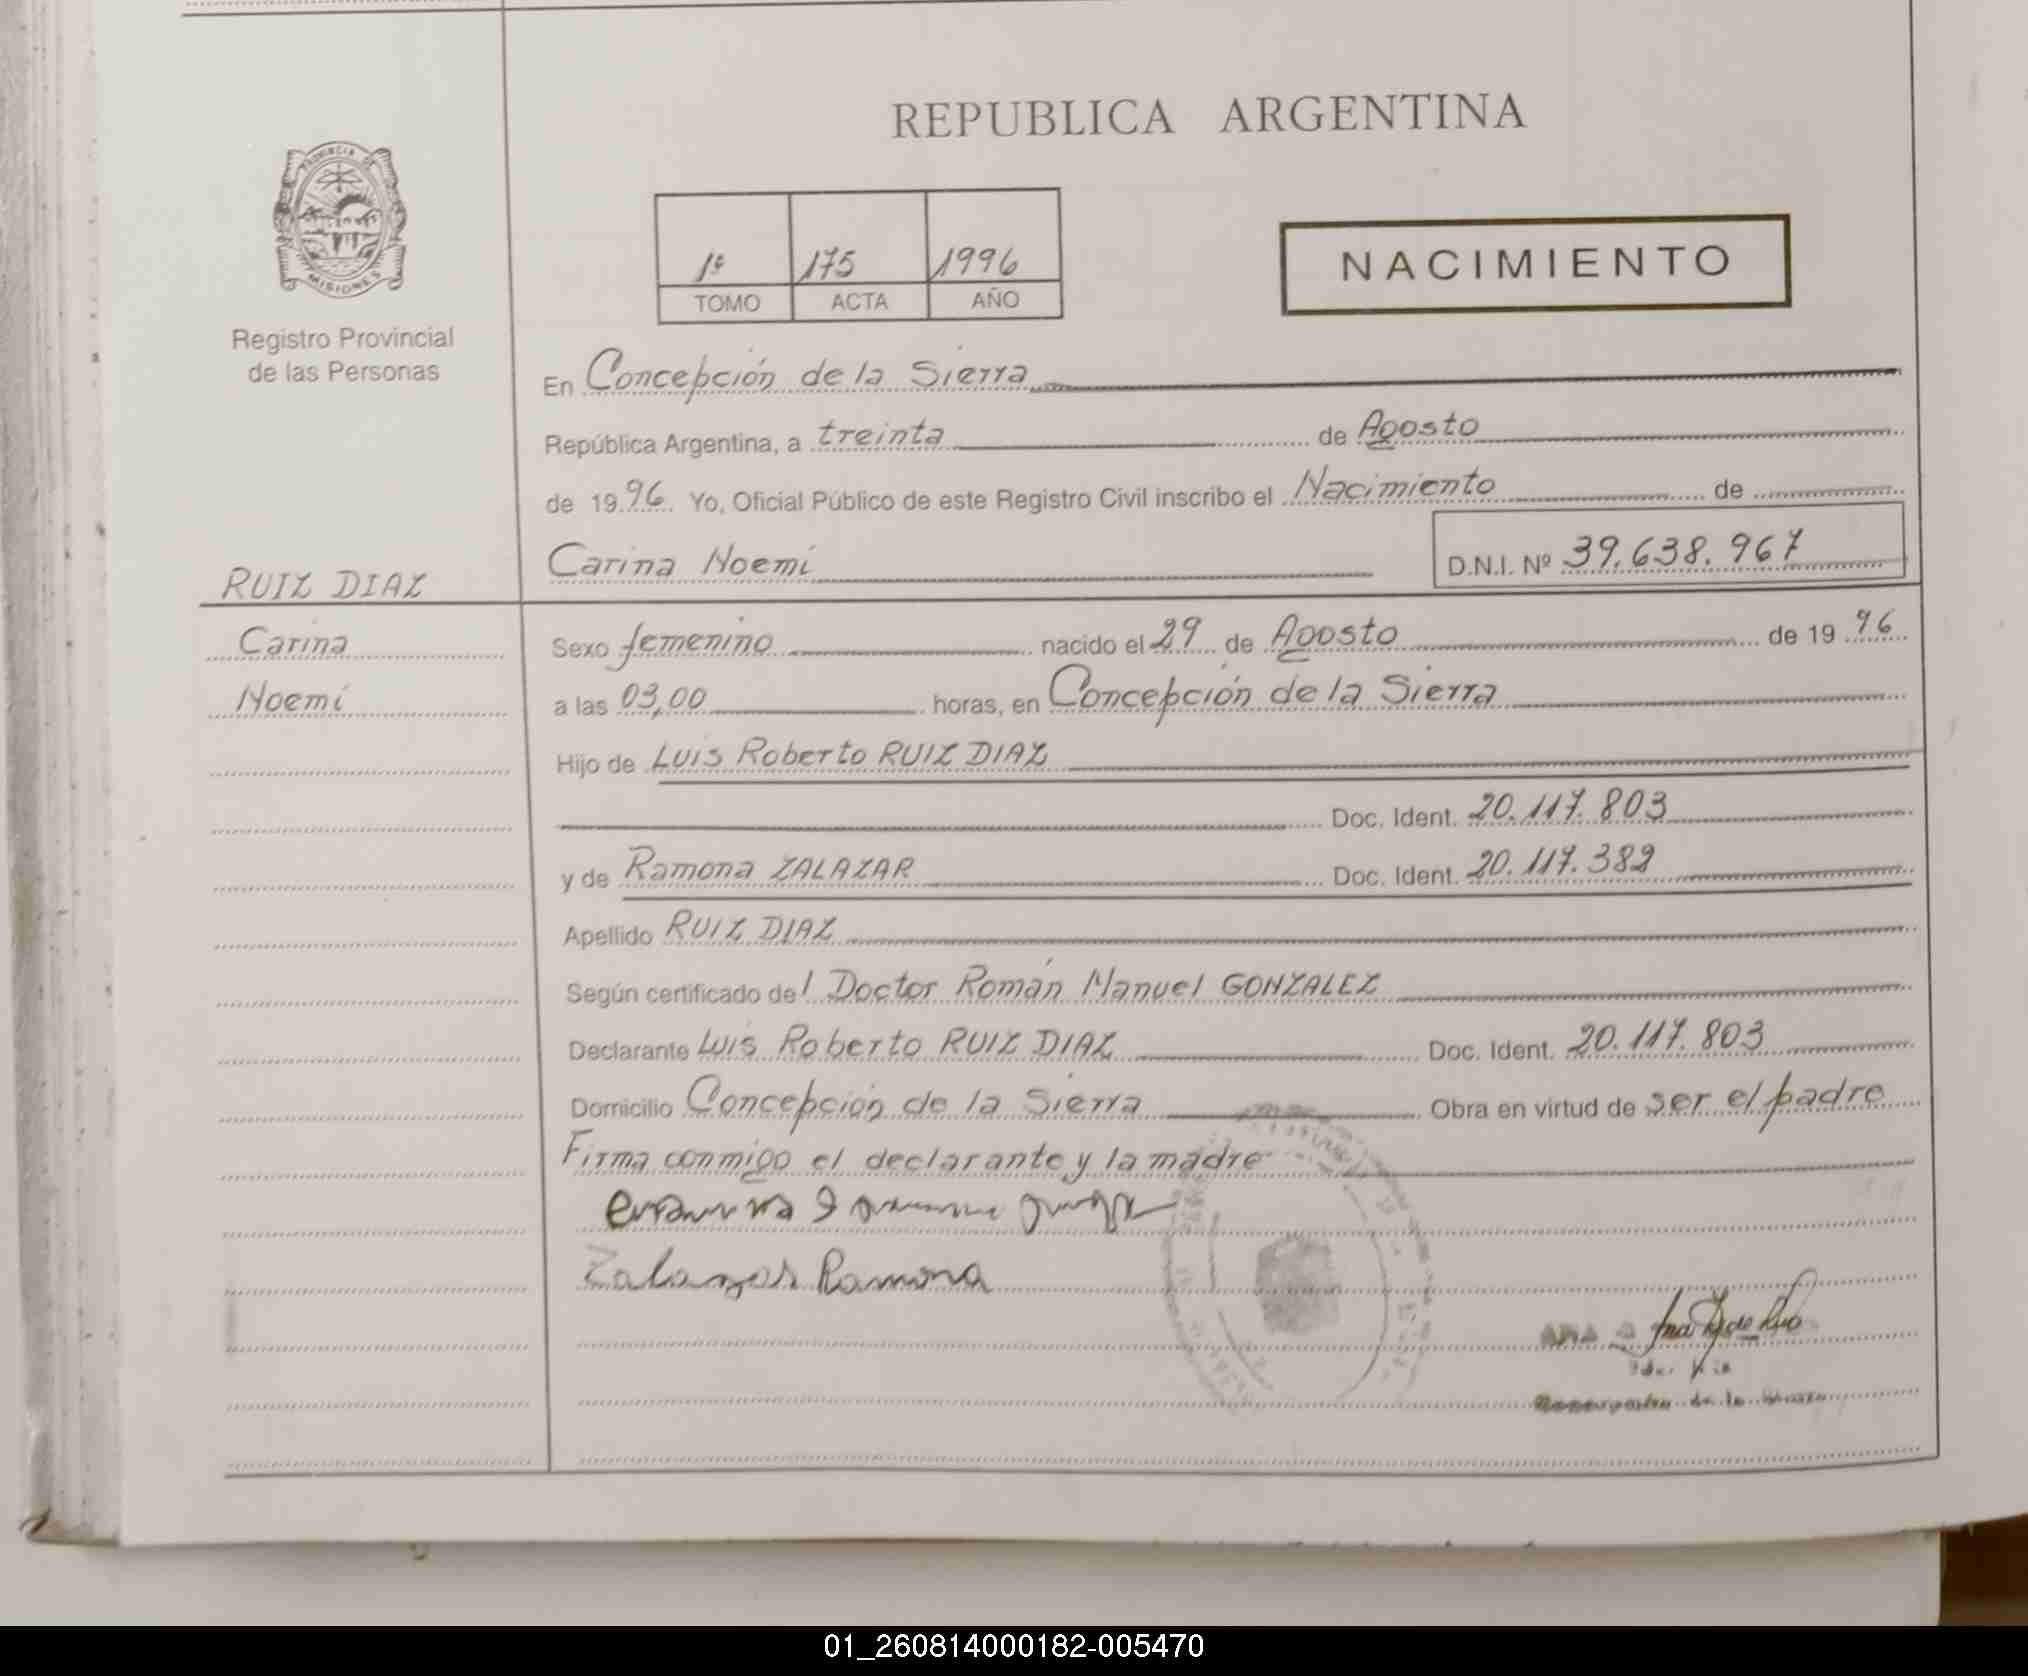 REPUBLICA ARGENTINA
PROVINCIA DE
MISIONES
Registro Provincial
de las Personas
1º 175 1996
TOMO ACTA AÑO
NACIMIENTO
En Concepción de la Sierra
República Argentina, a treinta de Agosto
de 1996. Yo, Oficial Público de este Registro Civil inscribo el Nacimiento de
Carina Noemí D.N.I. Nº 39.638.967
RUIZ DIAZ
Carina
Noemí
Sexo femenino nacido el 29 de Agosto de 1996
a las 03,00 horas, en Concepción de la Sierra
Hijo de Luis Roberto RUIZ DIAZ
Doc. Ident. 20.117.803
y de Ramona ZALAZAR Doc. Ident. 20.117.382
Apellido RUIZ DIAZ
Según certificado del Doctor Román Manuel GONZALEZ
Declarante Luis Roberto RUIZ DIAZ Doc. Ident. 20.117.803
Domicilio Concepción de la Sierra Obra en virtud de ser el padre
Firma conmigo el declarante y la madre
Zalazar Ramona
01_260814000182-005470